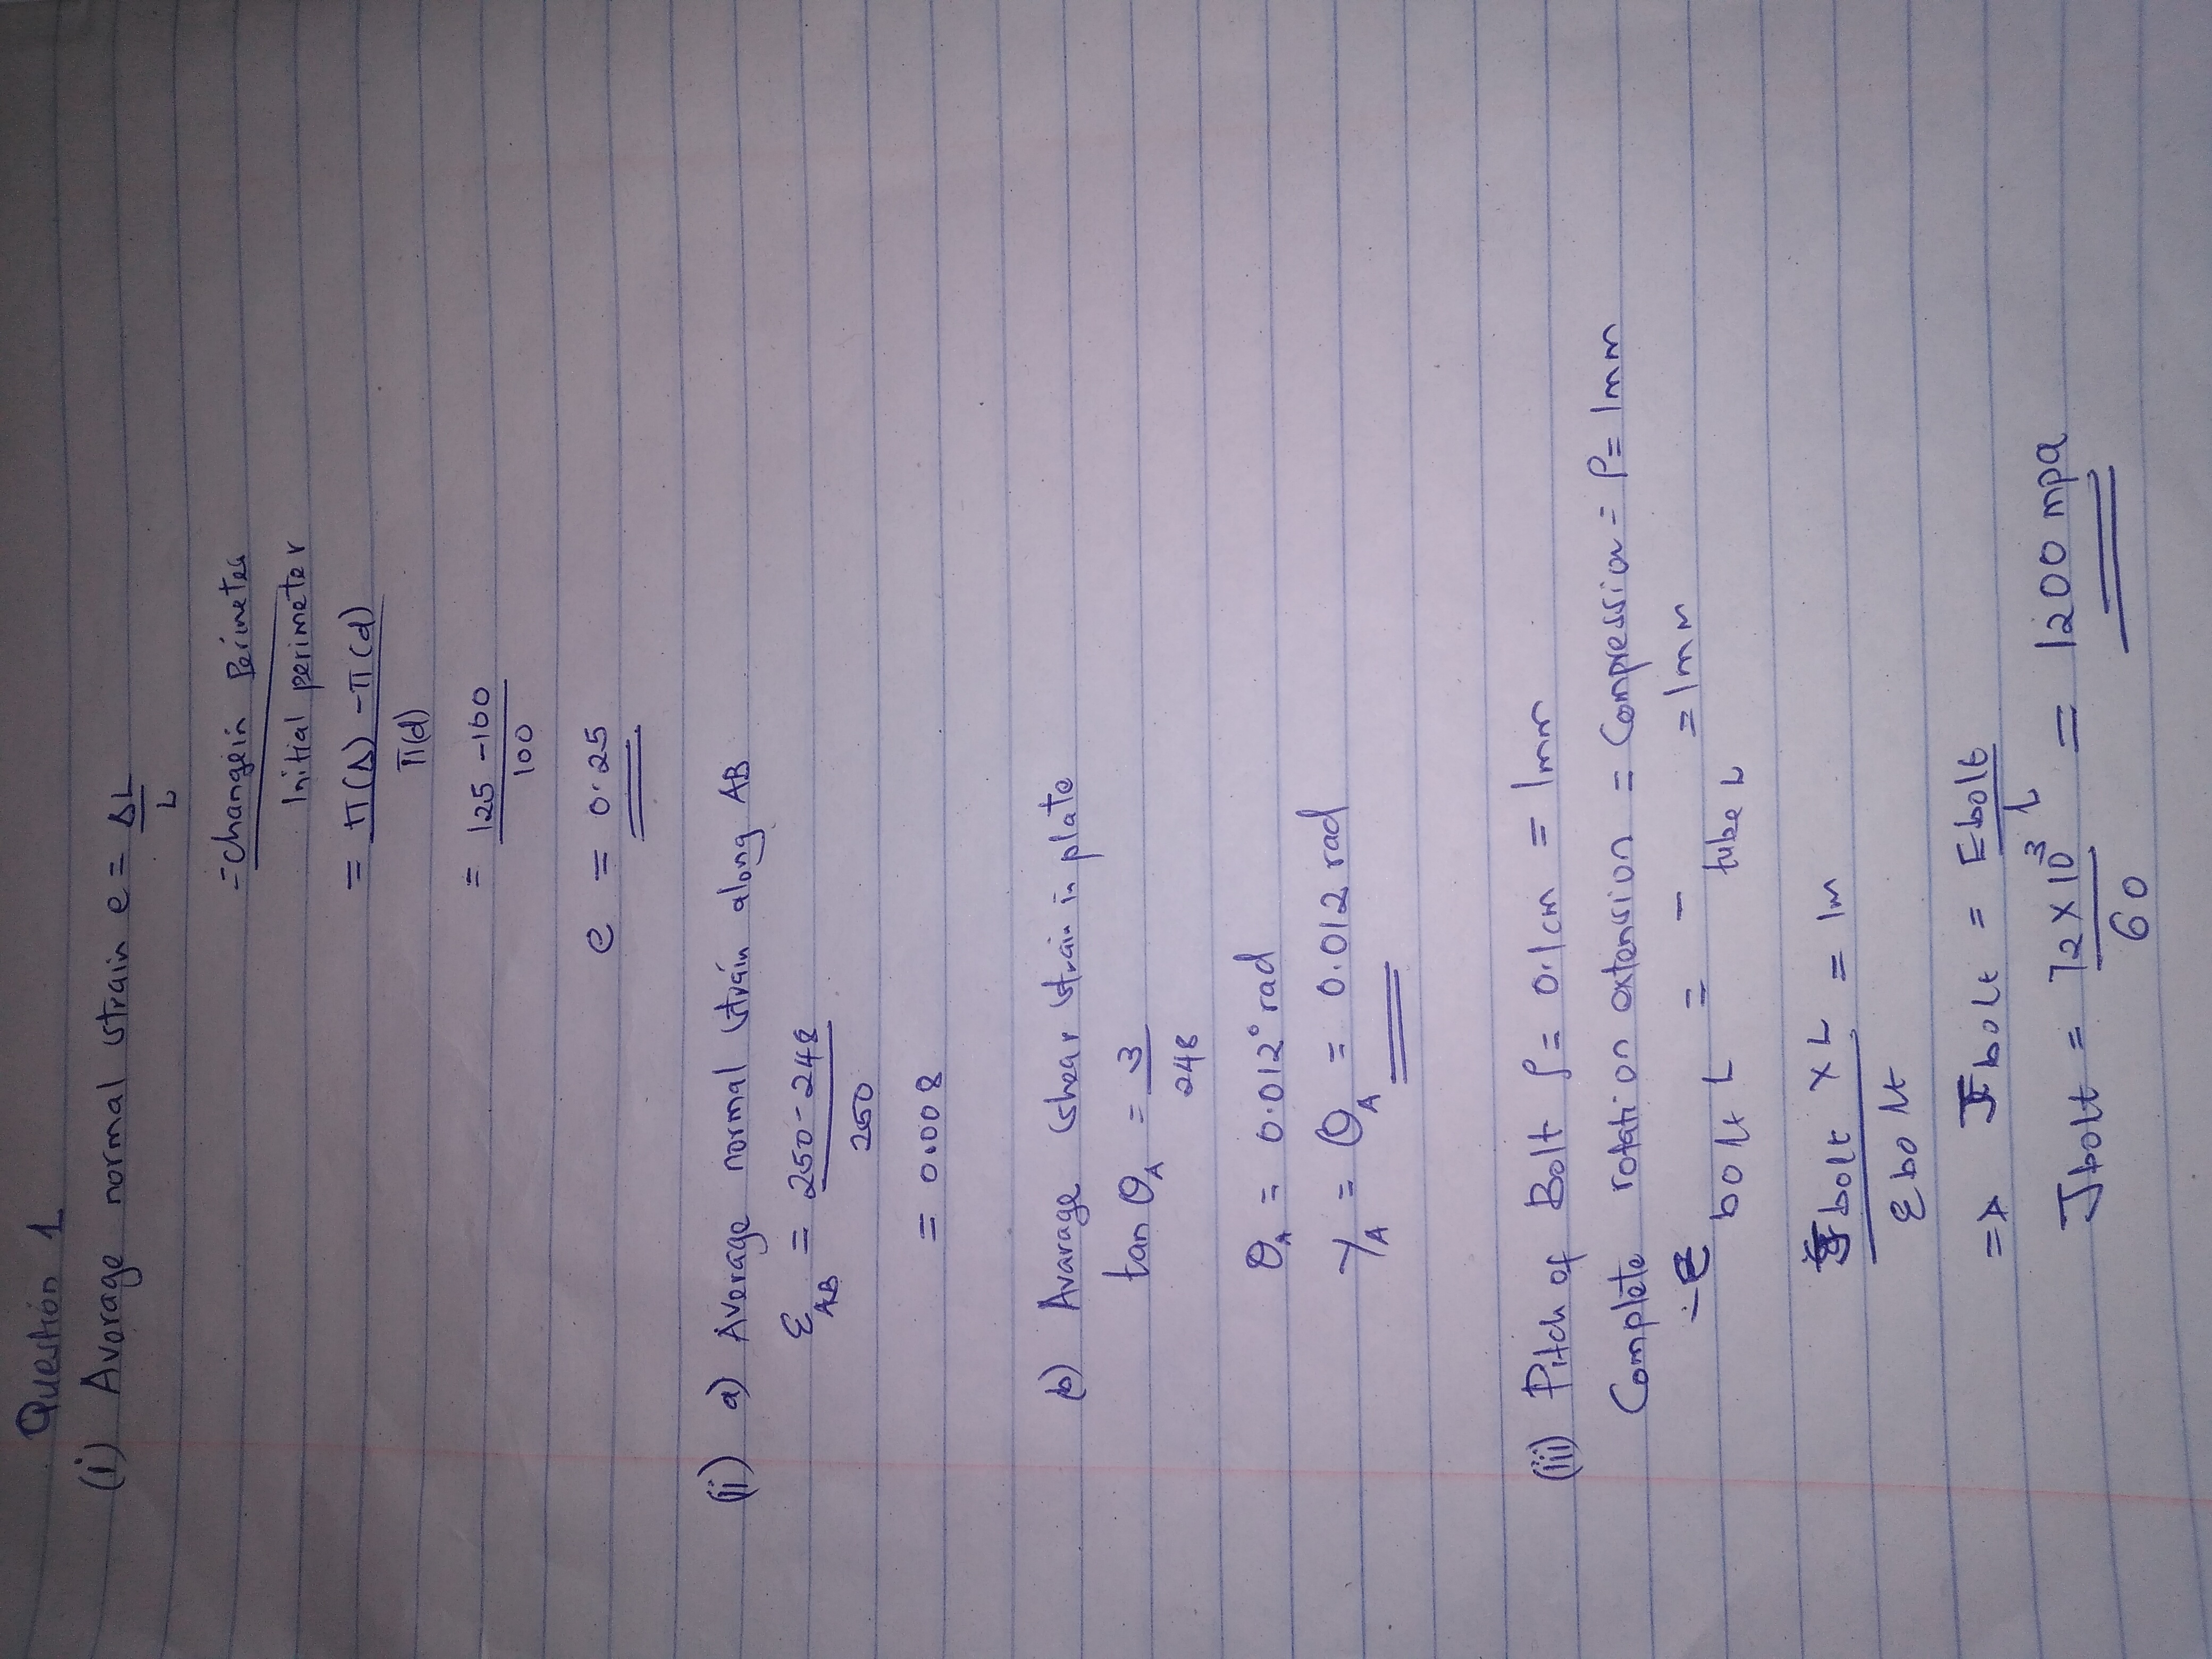 Question 1
(i) Average normal strain e = ΔL
L
= Change in Perimeter
Initial perimeter
= π(D) - π(d)
π(d)
= 125 - 100
100
e = 0.25
(ii) a) Average normal strain along AB
ε AB = 250 - 248
250
= 0.008
(b) Avarage shear strain in plate
tan θA = 3
248
θA = 0.012° rad
γA = θA = 0.012 rad
(iii) Pitch of Bolt ρ = 0.1cm = 1mm
Complete rotation extension = Compression = P = 1mm
bolt L = - tube L = 1mm
bolt x L = 1m
Ebolt
=> bolt = Ebolt
L
bolt = 72 x 10³ = 1200 mpa
60